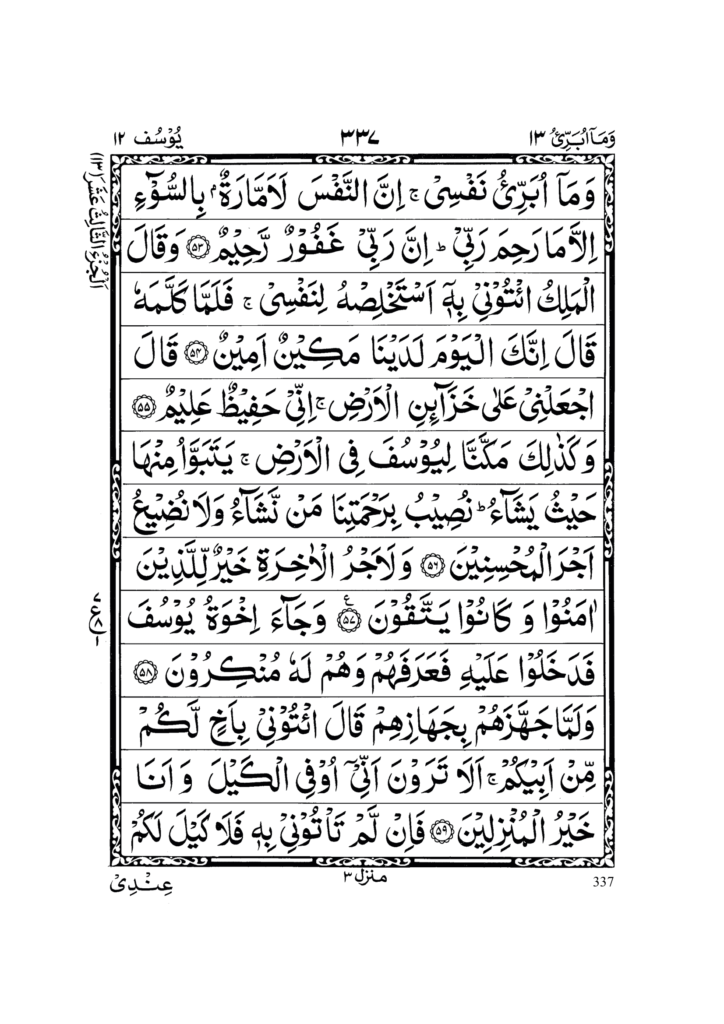 وَمَاۤاُبَرِّئُ ١٣ ٣٣٧ يُوْسُف ١٢
اَلْجُزْءُ الثَّالِثُ عَشَرَ (١٣)
وَمَاۤ اُبَرِّئُ نَفْسِیْ ۚ اِنَّ النَّفْسَ لَاَمَّارَةٌۢ بِالسُّوْٓءِ
اِلَّا مَا رَحِمَ رَبِّیْ ؕ اِنَّ رَبِّیْ غَفُوْرٌ رَّحِیْمٌ ﴿٥٣﴾ وَقَالَ
الْمَلِكُ ائْتُوْنِیْ بِهٖۤ اَسْتَخْلِصْهُ لِنَفْسِیْ ۚ فَلَمَّا كَلَّمَهٗ
قَالَ اِنَّكَ الْیَوْمَ لَدَیْنَا مَكِیْنٌ اَمِیْنٌ ﴿٥٤﴾ قَالَ
اجْعَلْنِیْ عَلٰی خَزَآىِٕنِ الْاَرْضِ ۚ اِنِّیْ حَفِیْظٌ عَلِیْمٌ ﴿٥٥﴾
وَكَذٰلِكَ مَكَّنَّا لِیُوْسُفَ فِی الْاَرْضِ ۚ یَتَبَوَّاُ مِنْهَا
حَیْثُ یَشَآءُ ؕ نُصِیْبُ بِرَحْمَتِنَا مَنْ نَّشَآءُ وَلَا نُضِیْعُ
اَجْرَ الْمُحْسِنِیْنَ ﴿٥٦﴾ وَلَاَجْرُ الْاٰخِرَةِ خَیْرٌ لِّلَّذِیْنَ
اٰمَنُوْا وَ كَانُوْا یَتَّقُوْنَ ﴿٥٧﴾ ع وَجَآءَ اِخْوَةُ یُوْسُفَ
فَدَخَلُوْا عَلَیْهِ فَعَرَفَهُمْ وَهُمْ لَهٗ مُنْكِرُوْنَ ﴿٥٨﴾
وَلَمَّا جَهَّزَهُمْ بِجَهَازِهِمْ قَالَ ائْتُوْنِیْ بِاَخٍ لَّكُمْ
مِّنْ اَبِیْكُمْ ۚ اَلَا تَرَوْنَ اَنِّیْۤ اُوْفِی الْكَیْلَ وَ اَنَا
خَیْرُ الْمُنْزِلِیْنَ ﴿٥٩﴾ فَاِنْ لَّمْ تَاْتُوْنِیْ بِهٖ فَلَا كَیْلَ لَكُمْ
عِنْدِیْ منزل ٣ 337